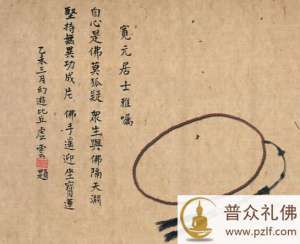 寬元居士雅囑
自心是佛莫狐疑 眾生與佛隔天淵
堅持功成片 佛手遙迎坐寶蓮
三月幻遊比丘虛雲題
普众礼佛
www.pzlf.com